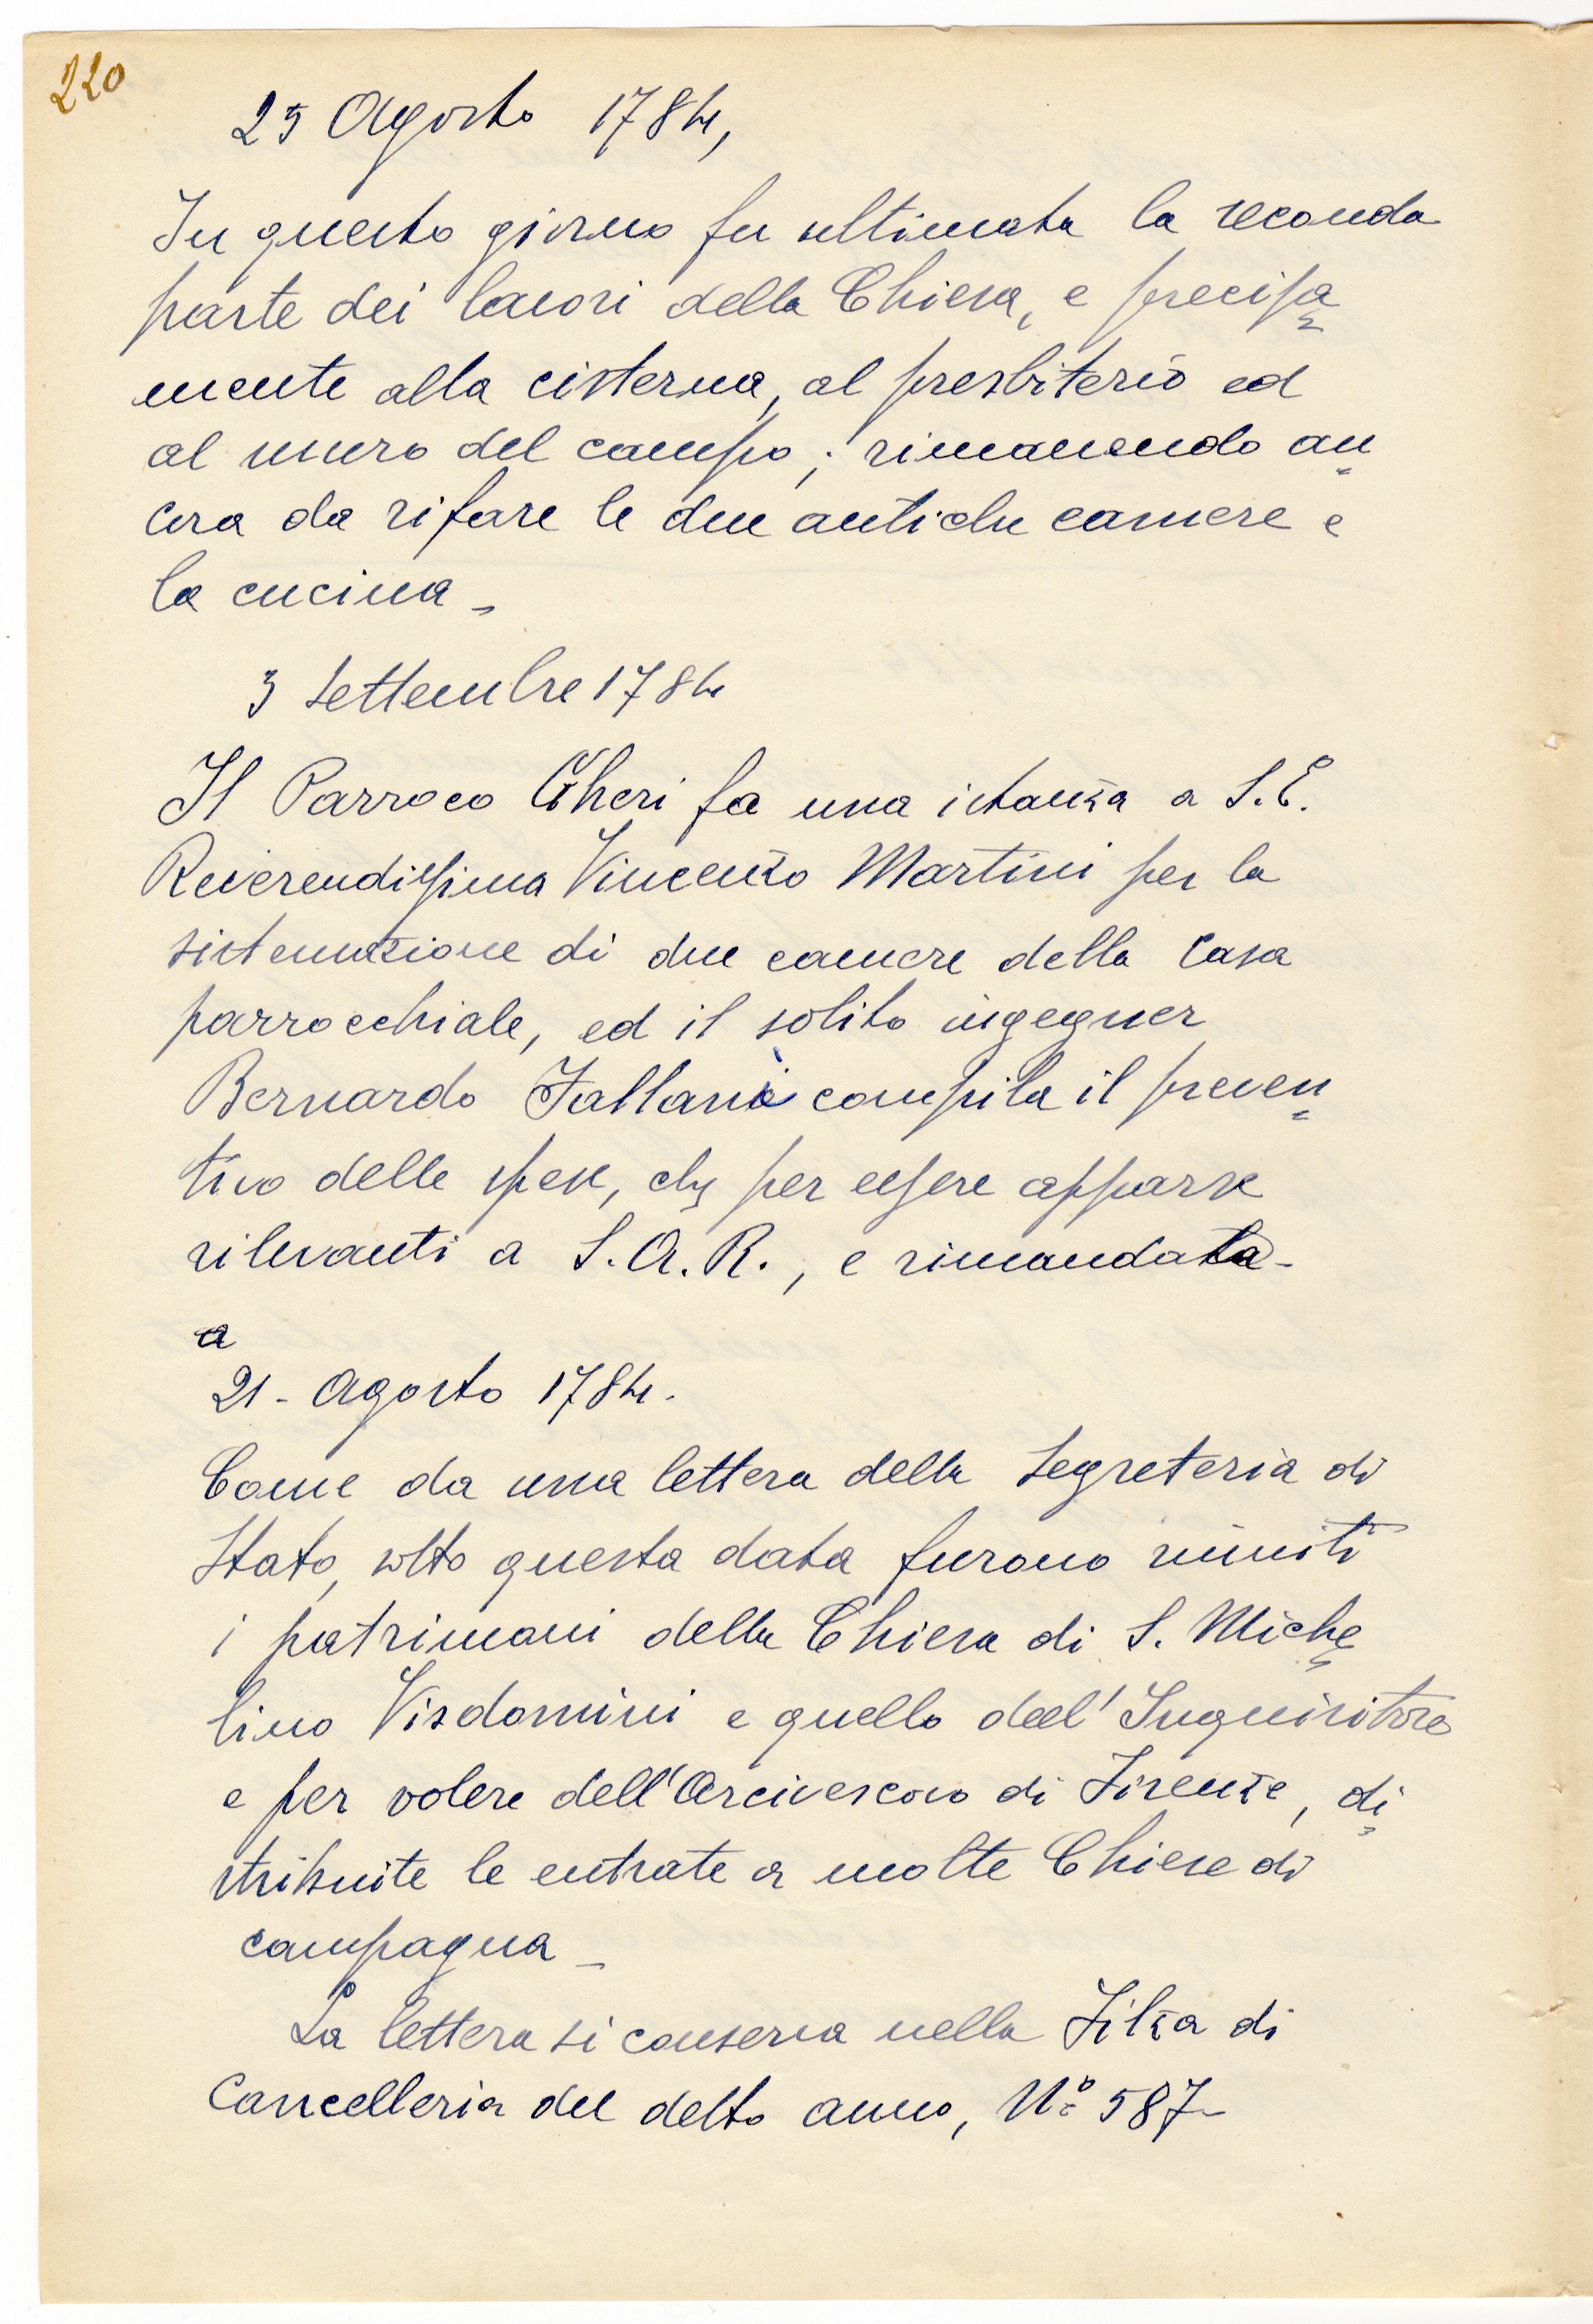 220
25 Agosto 1784,
In questo giorno fu ultimata la seconda
parte dei lavori della Chiesa, e precisa=
mente alla cisterna, al presbiterio ed
al muro del campo; rimanendo an=
cora da rifare le due antiche camere e
la cucina -
3 Settembre 1784
Il Parroco Gheri fa una istanza a S.E.
Reverendissima Vincenzo Martini per la
sistemazione di due camere della Casa
parrocchiale, ed il solito ingegner
Bernardo Fallani compila il preven=
tivo delle spese, che per essere apparse
rilevanti a S.A.R., e rimandata -
a
21 - Agosto 1784.
Come da una lettera della Segreteria di
Stato, sotto questa data furono riuniti
i patrimoni della Chiesa di S. Miche=
lino Visdomini e quello dell'Inquisitore
e per volere dell'Arcivescovo di Firenze, di=
stribuite le entrate a molte Chiese di
campagna -
La lettera si conserva nella Filza di
Cancelleria del detto anno, N° 587-